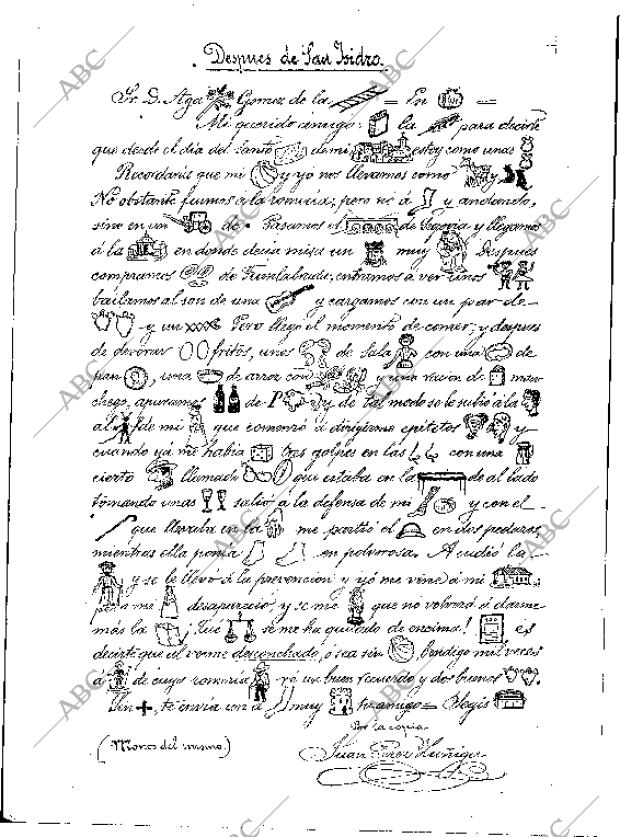 Despues de San Isidro.
Sr. D. Aga Gomez de la = En =
Mi querido amigo: la para decirte
que desde el día del Santo de mi estoy como unas
Recordarás que mi y yo nos llevamos como y
No obstante fuimos á la romería; pero no á y andando,
sino en un de . Pasamos el de Segovia y llegamos
á la en donde decia misa un muy Despues
compramos de Fuenlabrada; entramos a ver unos
bailamos al son de una y cargamos con un par de
y un Pero llegó el momento de comer; y despues
de devorar fritos, unos de Sala con una de
pan , una de arroz con y una racion de man-
chego, apuramos de P y de tal modo se le subió á la
al de mi que comenzó á dirigirme epítetos y
cuando yá me habia tres golpes en las con una
cierto llamado que estaba en la de al lado
tomando unas salió á la defensa de mi y con el
que llevaba en la me partió el en dos pedazos,
mientras ella ponia en polvorosa. Acudió la
y se le llevó á la prevencion y yó me vine á mi
pero mi desapareció y se me que no volverá á darme
más la ¡Qué se me ha quitado de encima! es
decirte que al verme desconchado, ó sea sin , bendigo mil veces
á de cuya romeria yó un buen recuerdo y dos buenos .
Sin +, te envia con á muy tu amigo = Elegis
Por la copia
(Mono del mismo.)
Juan Perez Zúñiga
ABC
ABC
ABC
ABC
ABC
ABC
ABC
ABC
ABC
ABC
ABC
ABC